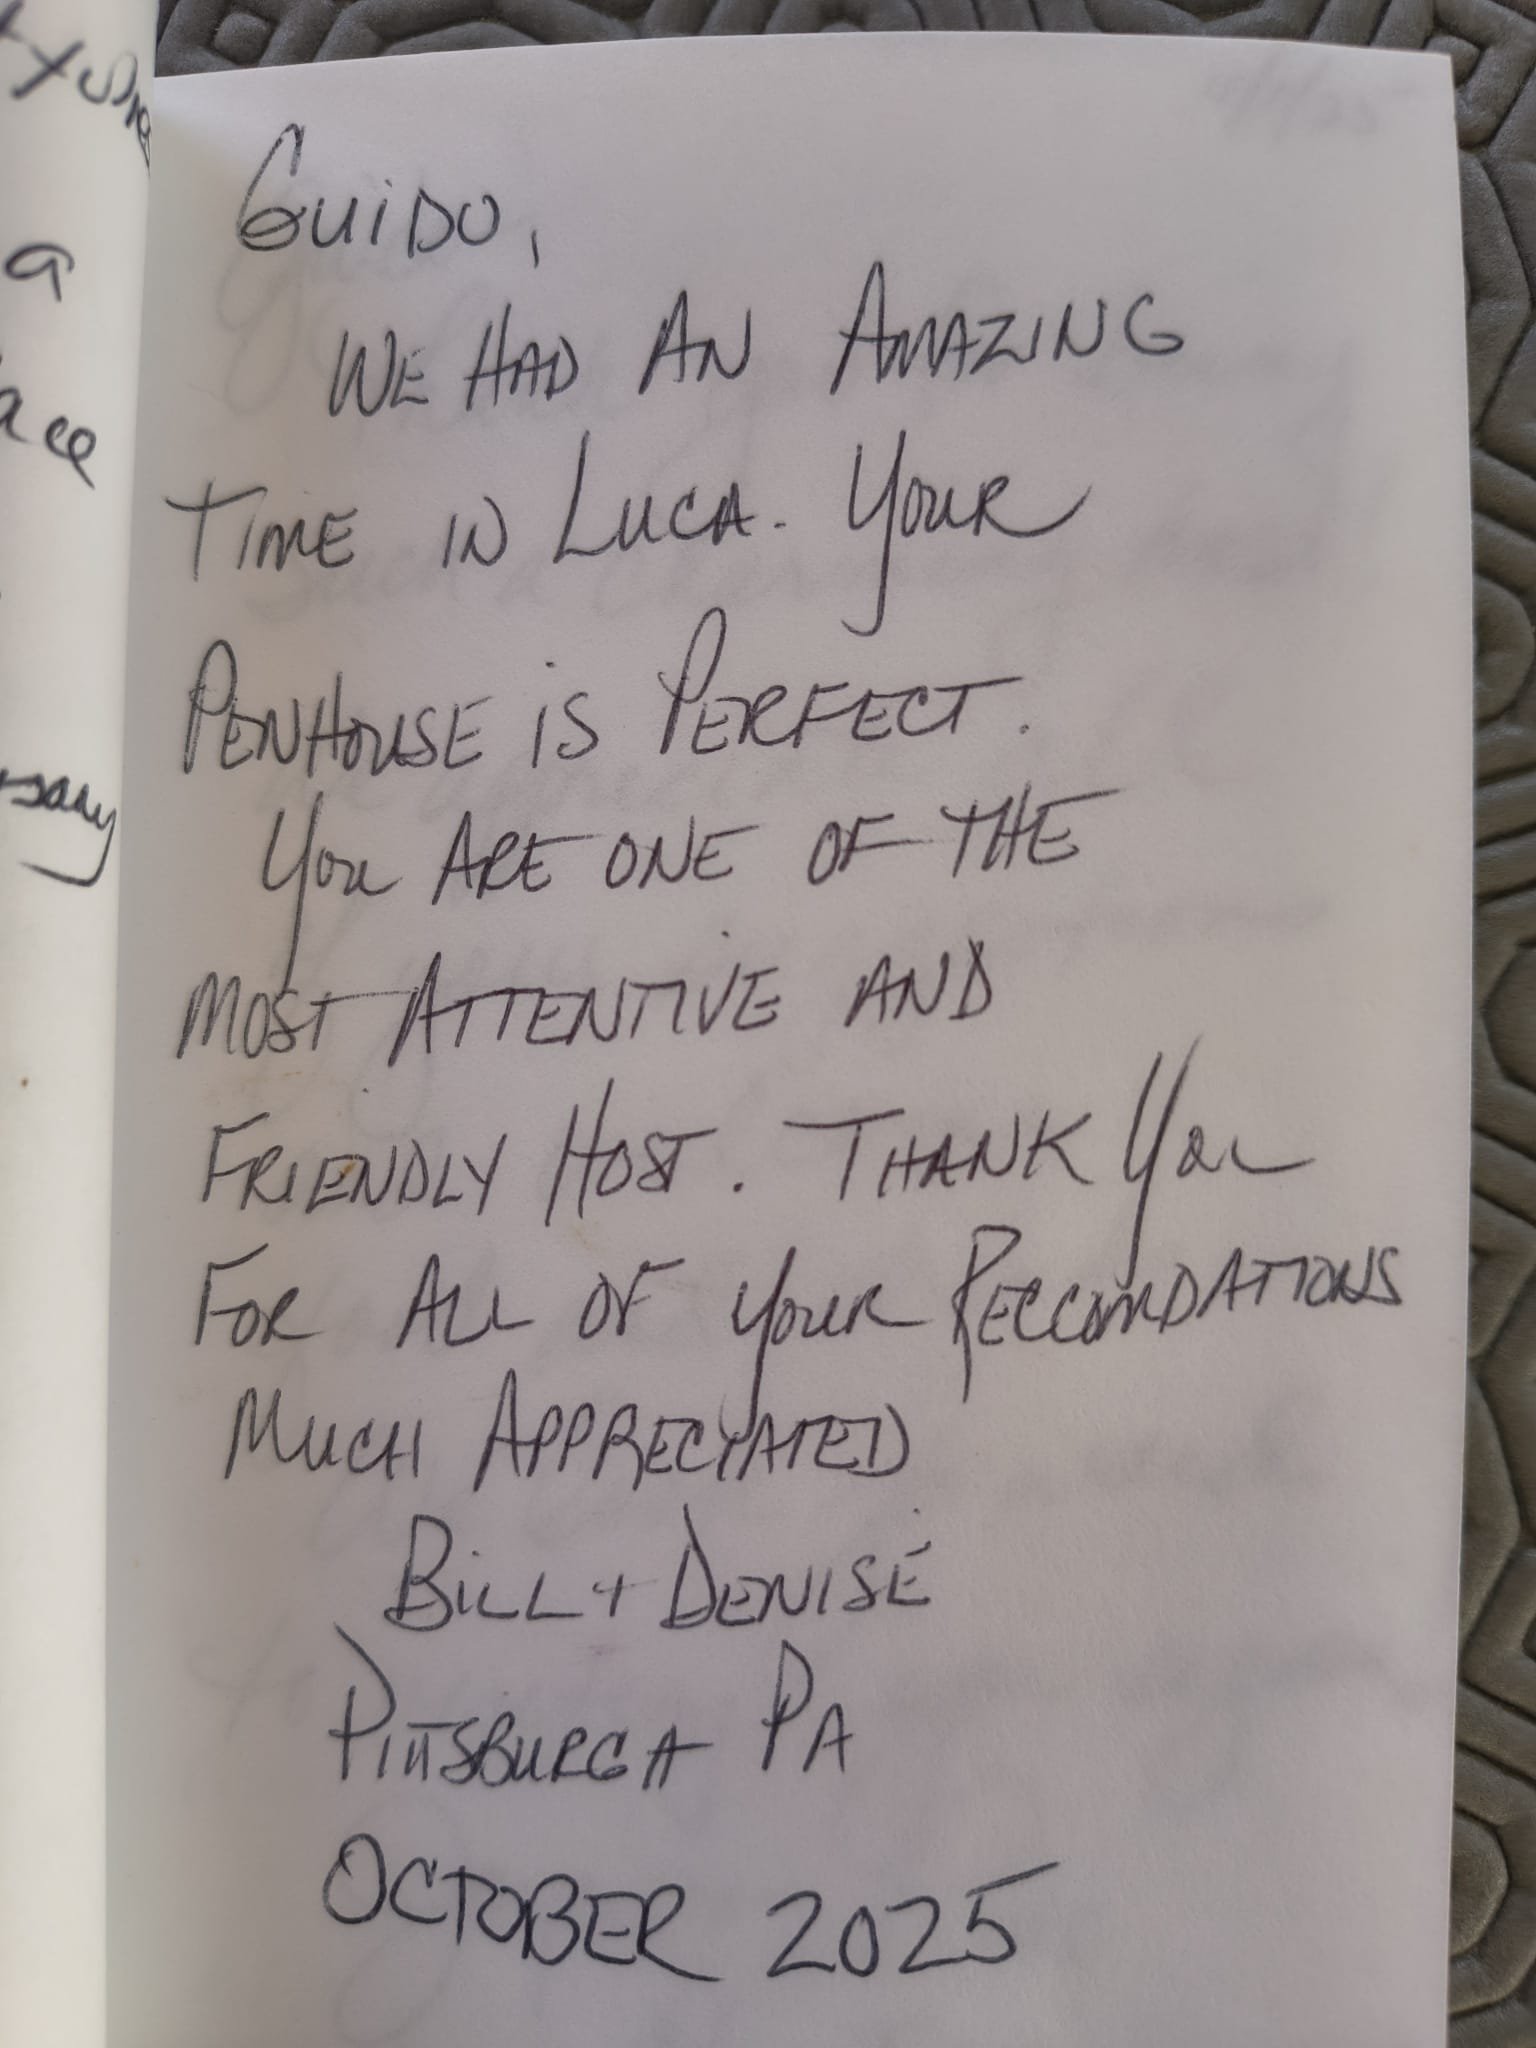 a
GUIDO,
WE HAD AN AMAZING
TIME IN LUCA. YOUR
PENHOUSE IS PERFECT.
YOU ARE ONE OF THE
MOST ATTENTIVE AND
FRIENDLY HOST. THANK YOU
FOR ALL OF YOUR RECCOMDATIONS
MUCH APPRECIATED
BILL + DENISE
PITTSBURGH PA
OCTOBER 2025